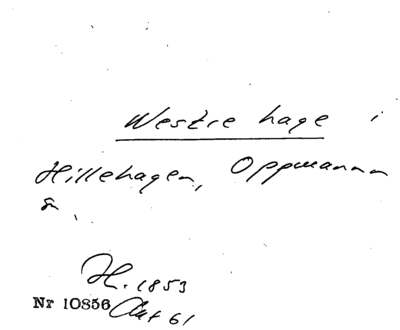 Westre hage i
Hillehagen, Oppmanna
sn.
H. 1853
Nr 10856 Akt 61